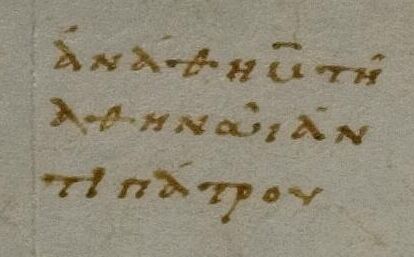 ἀνάθημ̅ τῆ
ἀθηνᾶι ἀν
τιπάτρου